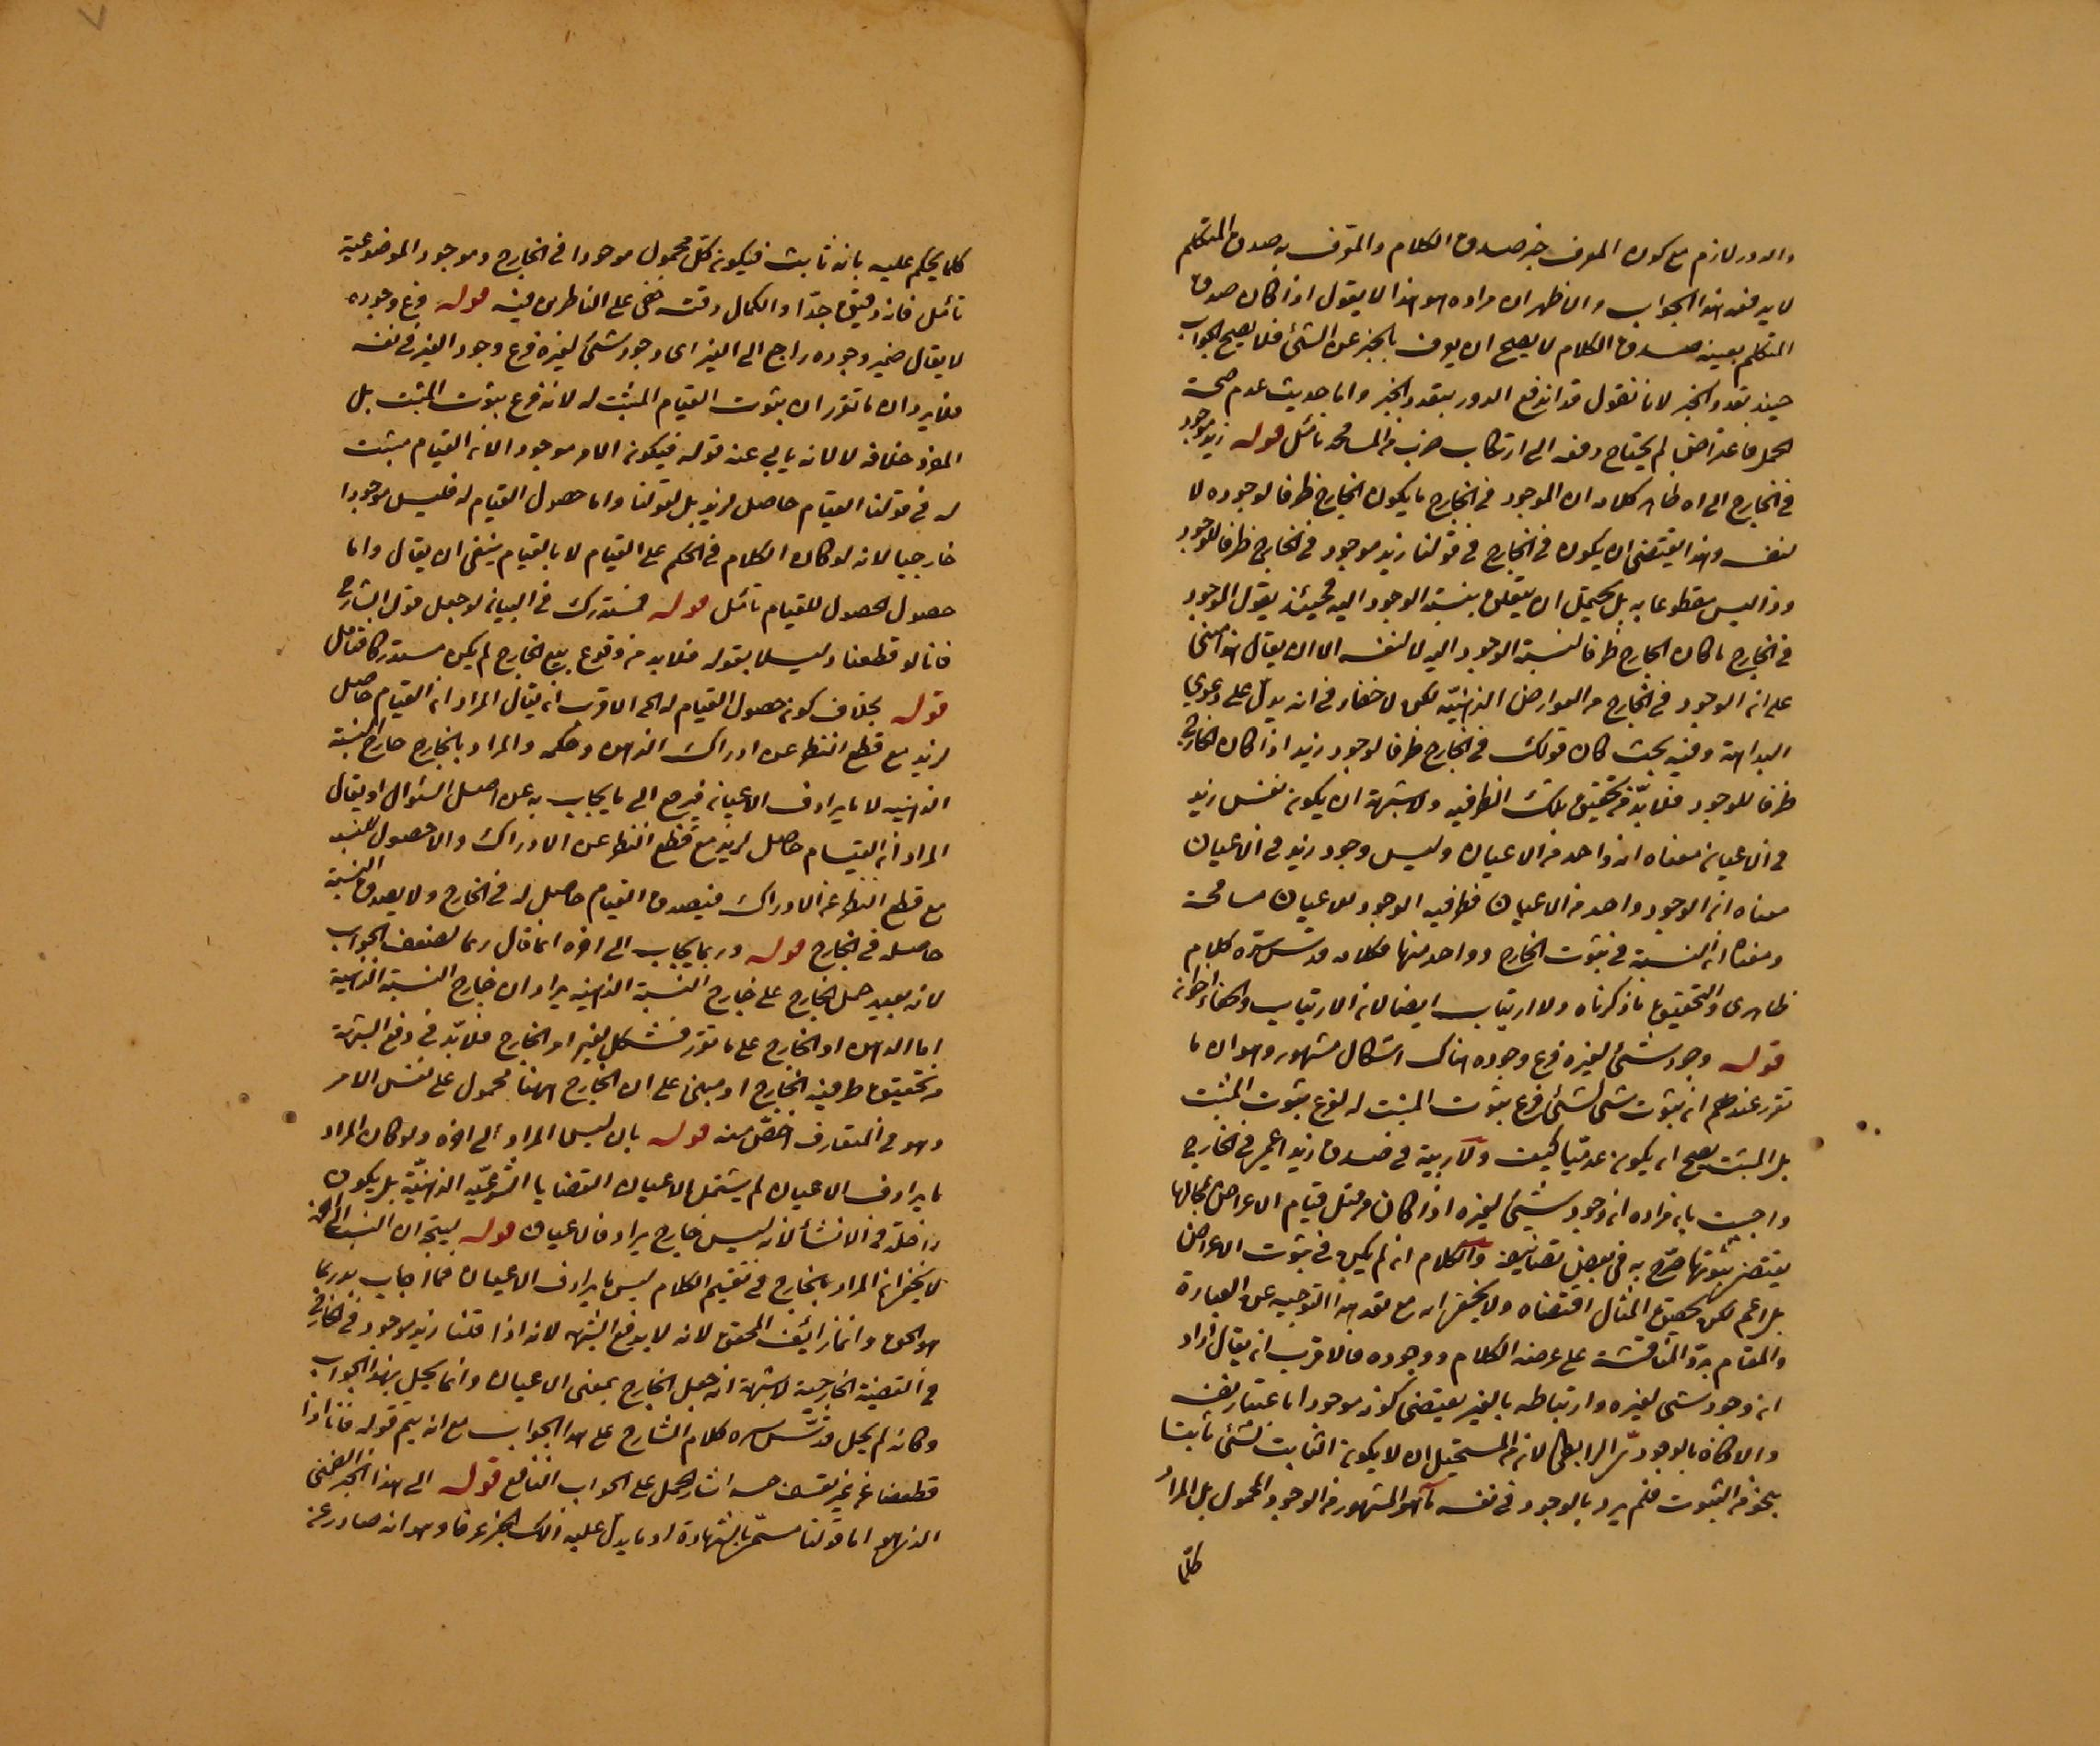 والدور لازم مع كون المعرف خبر صدق الكلام والمعرف به صدق المتكلم
لا يدفعه هذا الجواب والاظهر ان مراده هو هذا لا يقول اذا كان صدق
المتكلم بعينه صدق الكلام لا يصح ان يعرف بالخبر عن الشئ فلا يصح الجواب
حينئذ بتعدد الخبر لانا نقول قد اندفع الدور بتعدد الخبر واما حديث عدم صحة
الحمل فاعتراض لم يحتاج دفعه الى ارتكاب ضرب من المسامحة تأمل قوله زيد موجود
في الخارج الى اه ظاهر كلامه ان الموجود في الخارج ما يكون الخارج ظرفا لوجوده لا
لنفسه وهذا يقتضى ان يكون في الخارج في قولنا زيد موجود في الخارج ظرفا للوجود
وذا ليس مقطوعا به بل يحتمل ان يتعلق بنسبة الوجود اليه فحينئذ يقول الموجود
في الخارج ما كان الخارج ظرفا لنسبة الوجود اليه لا لنفسه الا ان يقال هذا مبنى
على ان الوجود في الخارج من العوارض الذهنية لكن لا خفاء في انه يدل على دعوى
البداهة وفيه بحث كان قولك في الخارج ظرفا لوجود زيد اذا كان الخارج
ظرفا للوجود فلا بد من تحقيق تلك الظرفية ولا شبهة ان يكون نفس زيد
في الاعيان معناه انه واحد من الاعيان وليس وجود زيد في الاعيان
معناه ان الوجود واحد من الاعيان فظرفية الوجود للاعيان مسامحة
ومعناه ان النسبة في ثبوت الخارج وواحد منها فكلامه قدس سره كلام
ظاهرى والتحقيق ما ذكرناه ولا ارتياب ايضا لان الارتياب
قوله وجود شئ لغيره فرع وجوده هناك اشكال مشهور وهو ان ما
تقرر عندهم ان ثبوت شئ لشئ فرع ثبوت المثبت له لا فرع ثبوت المثبت
بل المثبت يصح ان يكون عدميا كيف ولا ريبة في صدق زيد اعمى في الخارج
واجيب بان مراده ان وجود شئ لغيره اذا كان من قبل قيام الاعراض بمحالها
يقتضى ثبوتها صرح به في بعض تصانيفه والكلام ان لم يكن في ثبوت الاعراض
بل اعم لكن تحقيق المثال اقتضاه ولا يخفى انه مع بعد هذا التوجيه عن العبارة
والمقام يرد المناقشة على عرضه الكلام ووجوده فالاقرب ان يقال اراد
ان وجود شئ لغيره وارتباطه بالغير يقتضى كونه موجودا باعتبار نفسه
والا كان بالوجود الرابطى لانه من المستحيل ان لا يكون الثابت لشئ ثابتا
بنحو من الثبوت فلم يرد بالوجود في نفسه ما هو المشهور من الوجود المحمول بل المراد
كلما
كلما يحكم عليه بانه ثابت فيكون كل محمول موجودا في الخارج وموجود الموضوعية
تأمل فانه دقيق جدا ولكمال دقته خفى على الناظرين فيه قوله فرع وجوده
لا يقال ضمير وجوده راجع الى الغير اى وجود شئ لغيره فرع وجود الغير في نفسه
فلا يرد ان ما تقرر ان ثبوت القيام المثبت له لا نه فرع ثبوت المثبت بل
المقرر خلافه لا لانه يأبى عنه قوله فيكون الامر موجود الا ان القيام مثبت
له في قولنا القيام حاصل لزيد بل لقولنا واما حصول القيام له فليس موجودا
خارجيا لانه لو كان الكلام في الحكم على القيام لا بالقيام ينبغى ان يقال واما
حصول الحصول للقيام تأمل قوله فمستدرك في البيان لو جعل قول الشارح
فانا لو قطعنا دليلا بقوله فلا بد من وقوع بيع الخارج لم يكن مستدركا فتأمل
قوله بخلاف كون حصول القيام له الى الاقرب ان يقال المراد ان القيام حاصل
لزيد مع قطع النظر عن ادراك الذهن وحكمه والمراد بالخارج خارج النسبة
الذهنية لا ما يرادف الاعيان فيرجع الى ما يجاب به عن اصل السؤال او يقال
المراد ان القيام حاصل لزيد مع قطع النظر عن الادراك والا حصول للنسبة
مع قطع النظر عن الادراك فيصدق القيام حاصل له في الخارج ولا يصدق النسبة
حاصلة في الخارج قوله وربما يجاب الى اخره انما قال ربما لضعف الجواب
لانه بعيد حمل الخارج على خارج النسبة الذهنية يراد ان خارج النسبة الذهنية
اما الذهن او الخارج على ما تقرر فمشكل لغير او الخارج فلا بد في دفع الشبهة
من تحقيق ظرفية الخارج او مبنى على ان الخارج ههنا محمول على نفس الامر
وهو في المتعارف اخص منه قوله بان ليس المراد الى اخره ولو كان المراد
ما يرادف الاعيان لم يشتمل الاعيان القضايا الشرعية الذهنية بل يكون
داخلة في الانشأ لانه ليس خارج يرادف الاعيان قوله ليتجه ان النسب
لا يخفى ان المراد بالخارج في تقسيم الكلام ليس ما يرادف الاعيان فما اجاب به بربما
هو الحق وانما زائف المحقق لانه لا يدفع الشبهة لانه اذا قلنا زيد موجود في الخارج
في القضية الخارجية لا شبهة انه جعل الخارج بمعنى الاعيان وانما يحل بهذا الجواب
وكان لم يحل قدس سره كلام الشارح على هذا الجواب مع انه يتم قوله فانا اذا
قطعنا اشار الحمل على الجواب النافع قوله الى هذا الخبر الضمنى
الذهن اما قولنا مستمر بالشهادة او ما يدل عليه ذلك الخبر عرفا وهو انه صادر عنه